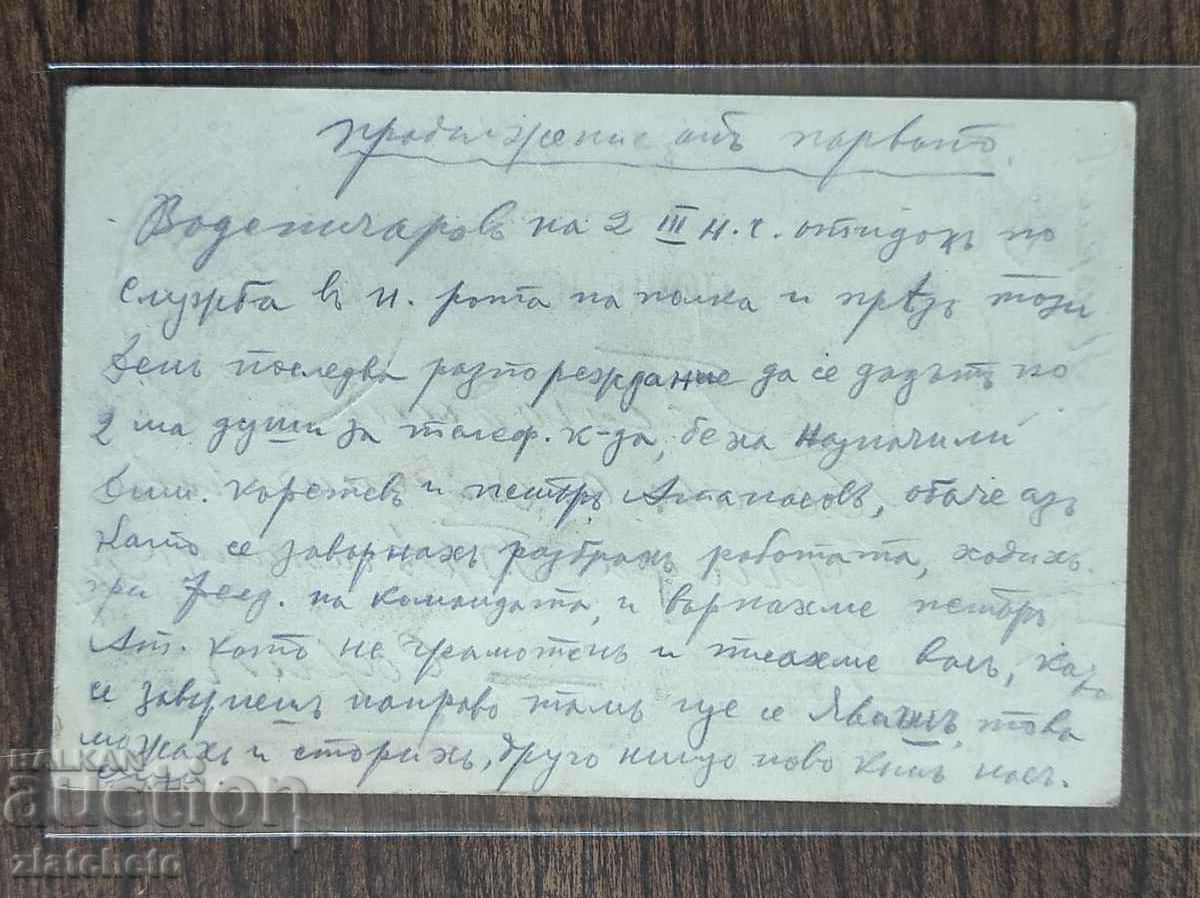 продължение отъ първото.
Воденичаровъ на 2 III н.г. отидохъ по
служба въ н. рота на полка и прѣзъ този
день последва разпореждание да се дадътъ по
2 ма души за телеф. к-да, беха назначили
Дим. и Петъръ Атанасовъ, обаче азъ
като се завърнахъ разбрахъ работата, ходихъ
при Фелд. на командата, и върнахме Петъръ
Ат. като не грамотенъ и писахме васъ, като
се завърнешъ направо тамъ ще се явишъ, това
можахъ и сторихъ, друго нищо ново къмъ насъ.
BALKAN
auction
zlatcheto